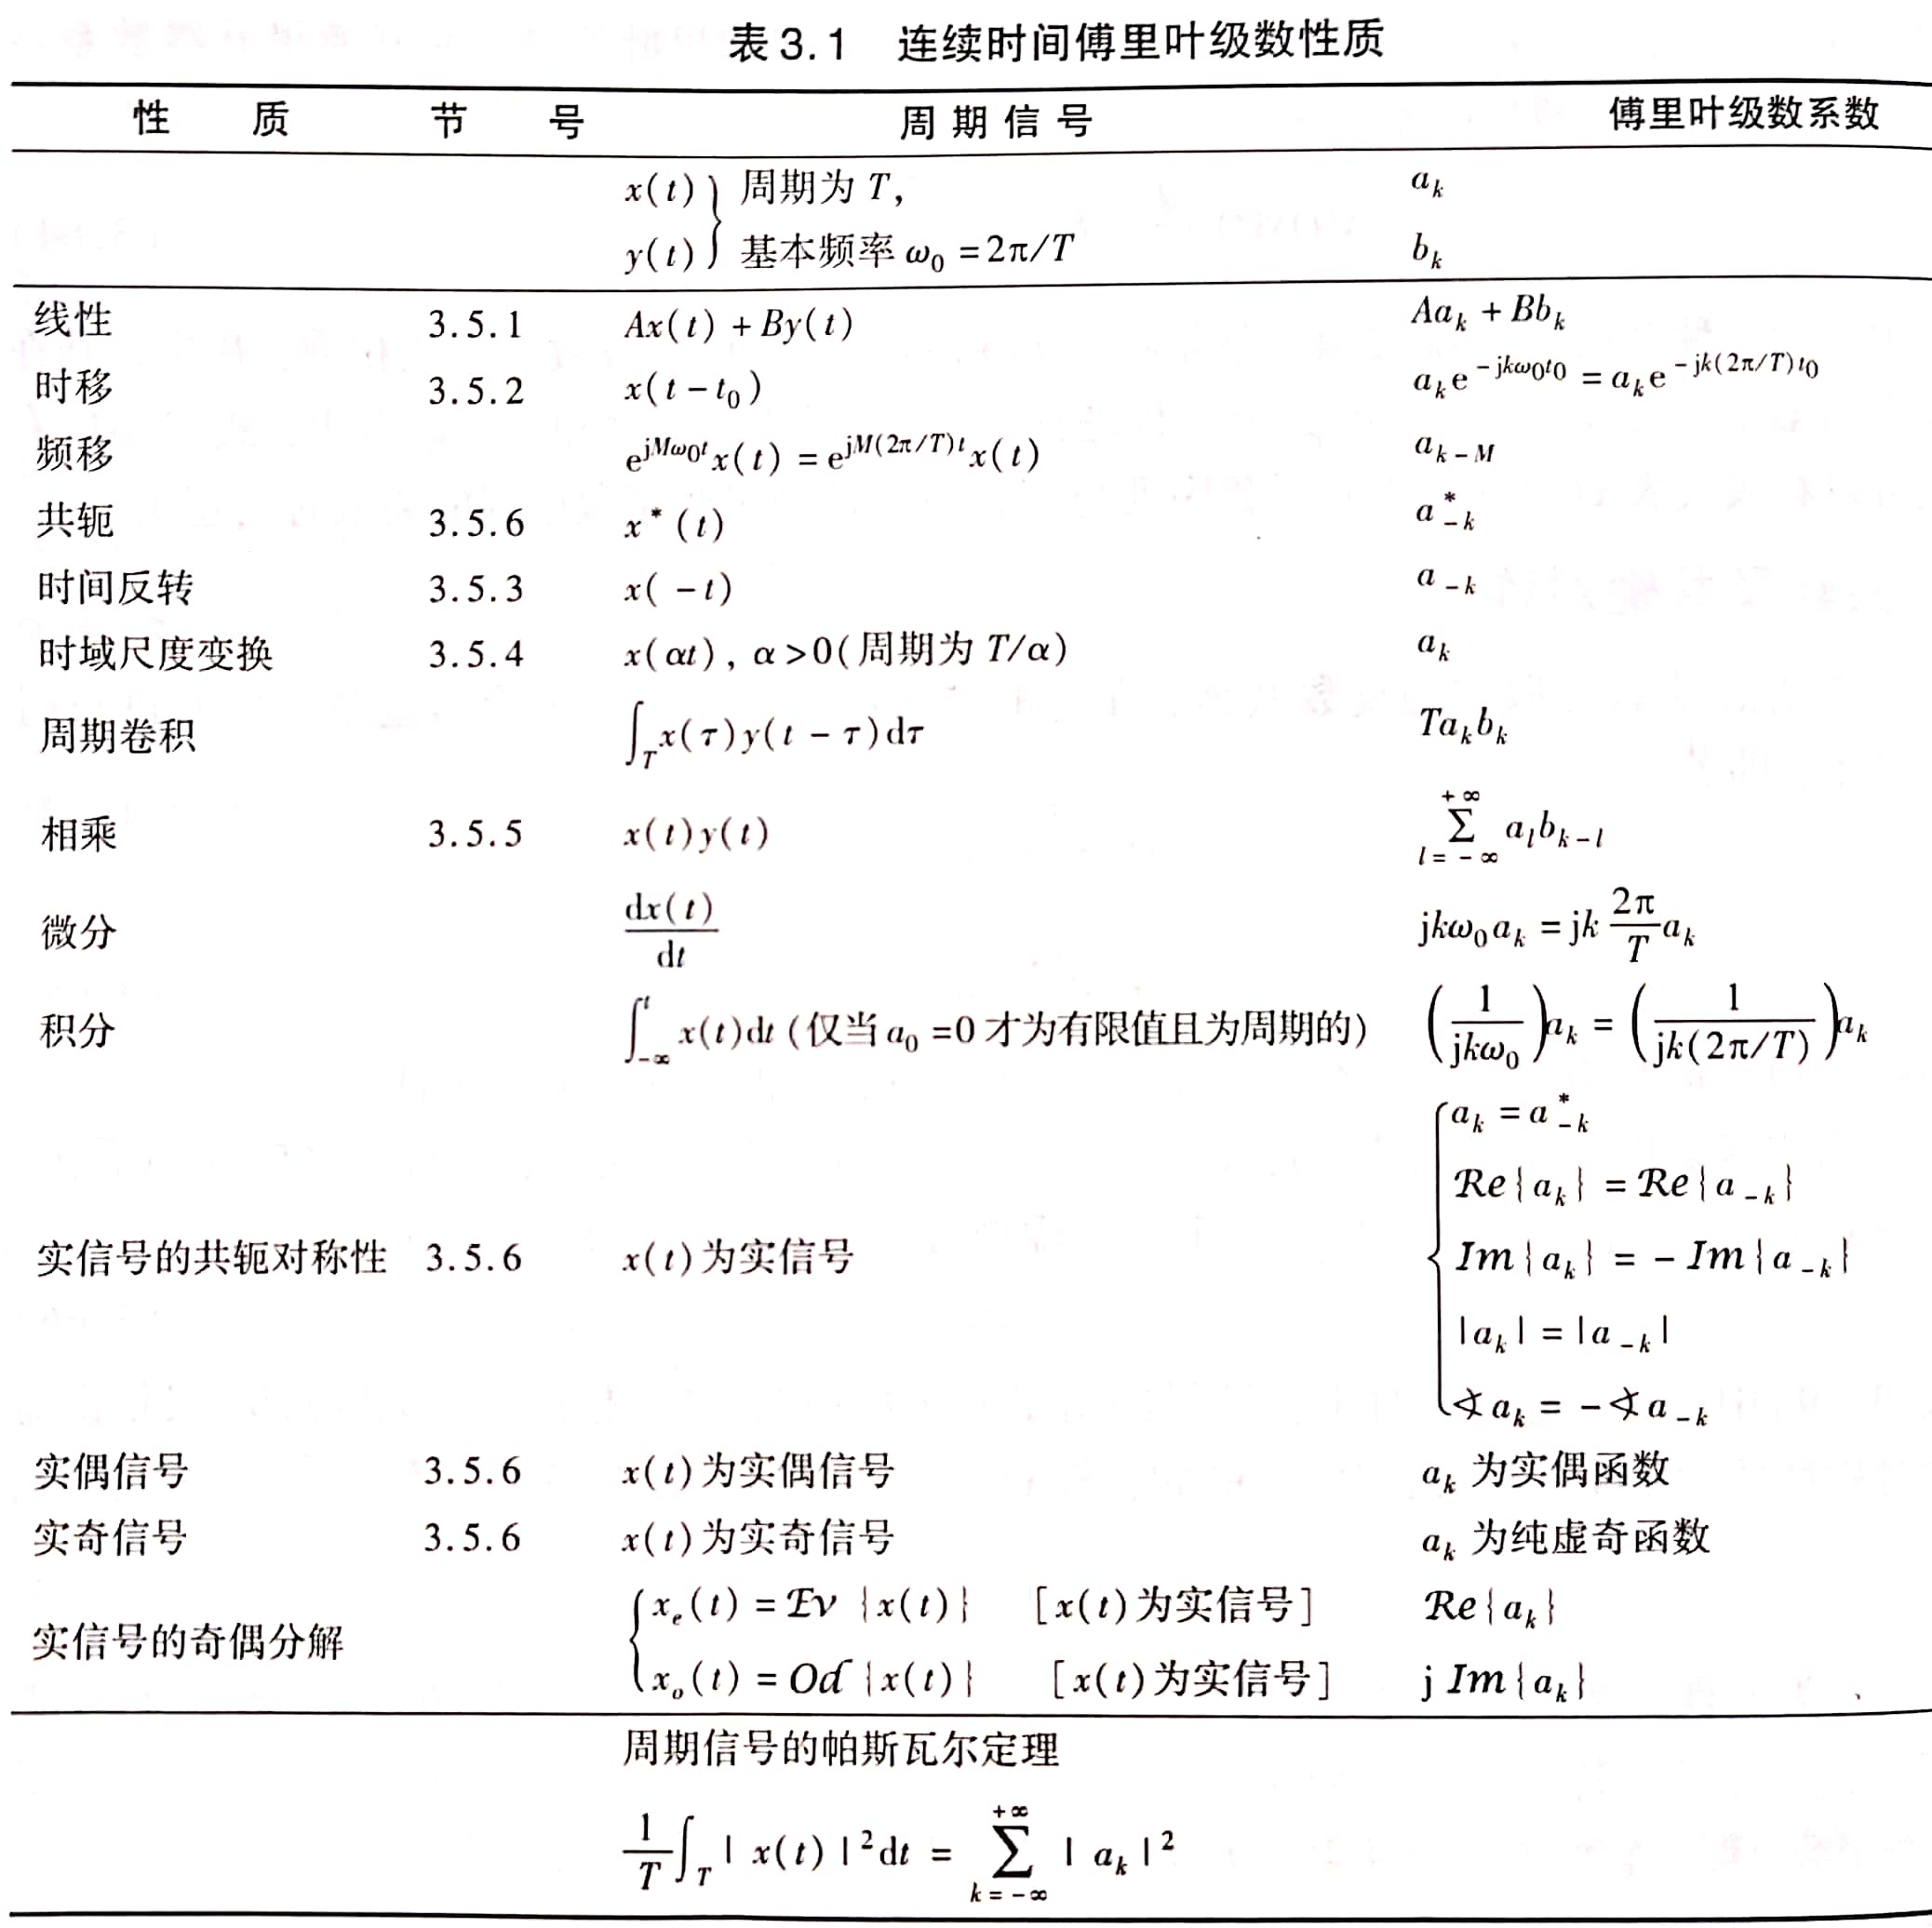 表3.1 连续时间傅里叶级数性质
性 质 节 号 周期信号 傅里叶级数系数
x(t) } 周期为 T, a_k
y(t) } 基本频率 ω₀ = 2π/T b_k
线性 3.5.1 Ax(t) + By(t) Aa_k + Bb_k
时移 3.5.2 x(t - t₀) a_k e^{-jkω₀t₀} = a_k e^{-jk(2π/T)t₀}
频移 e^{jMω₀t}x(t) = e^{jM(2π/T)t}x(t) a_{k-M}
共轭 3.5.6 x*(t) a*_{-k}
时间反转 3.5.3 x(-t) a_{-k}
时域尺度变换 3.5.4 x(αt), α>0(周期为 T/α) a_k
周期卷积 ∫_T x(τ)y(t - τ)dτ Ta_k b_k
相乘 3.5.5 x(t)y(t) ∑_{l=-∞}^{+∞} a_l b_{k-l}
微分 dx(t)/dt jkω₀a_k = jk (2π/T) a_k
积分 ∫_{-∞}^{t} x(t)dt (仅当 a₀ =0 才为有限值且为周期的) (1/(jkω₀))a_k = (1/(jk(2π/T)))a_k
实信号的共轭对称性 3.5.6 x(t)为实信号 { a_k = a*_{-k}
Re{a_k} = Re{a_{-k}}
Im{a_k} = -Im{a_{-k}}
|a_k| = |a_{-k}|
∢a_k = -∢a_{-k}
实偶信号 3.5.6 x(t)为实偶信号 a_k 为实偶函数
实奇信号 3.5.6 x(t)为实奇信号 a_k 为纯虚奇函数
实信号的奇偶分解 { x_e(t) = Ev{x(t)} [x(t)为实信号] Re{a_k}
x_o(t) = Od{x(t)} [x(t)为实信号] j Im{a_k}
周期信号的帕斯瓦尔定理
1/T ∫_T |x(t)|²dt = ∑_{k=-∞}^{+∞} |a_k|²